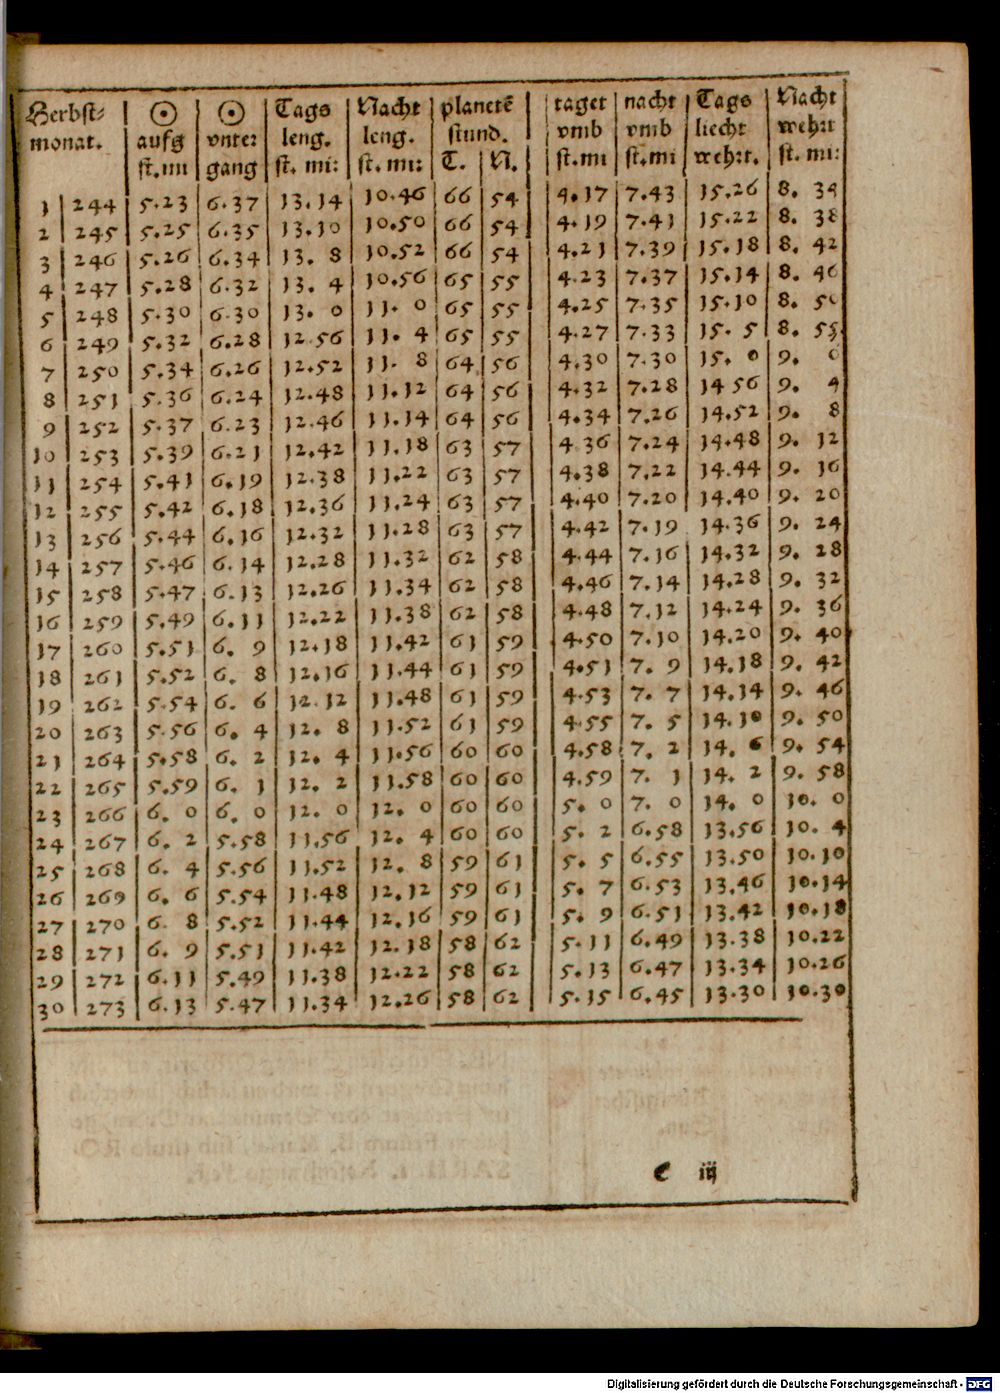 Herbst= | ☉ | ☉ | Tags | Nacht | planetē | taget | nacht | Tags | Nacht
monat. | aufg | vnter | leng. | leng. | stund. | vmb | vmb | liecht | wehrt
st. mi | gang | st. mi: | st. mi: | T. | N. | st. mi | st. mi | wehrt. | st. mi:
1 | 244 | 5.23 | 6.37 | 13.14 | 10.46 | 66 | 54 | 4.17 | 7.43 | 15.26 | 8. 34
2 | 245 | 5.25 | 6.35 | 13.10 | 10.50 | 66 | 54 | 4.19 | 7.41 | 15.22 | 8. 38
3 | 246 | 5.26 | 6.34 | 13. 8 | 10.52 | 66 | 54 | 4.21 | 7.39 | 15.18 | 8. 42
4 | 247 | 5.28 | 6.32 | 13. 4 | 10.56 | 65 | 55 | 4.23 | 7.37 | 15.14 | 8. 46
5 | 248 | 5.30 | 6.30 | 13. 0 | 11. 0 | 65 | 55 | 4.25 | 7.35 | 15.10 | 8. 50
6 | 249 | 5.32 | 6.28 | 12.56 | 11. 4 | 65 | 55 | 4.27 | 7.33 | 15. 5 | 8. 55
7 | 250 | 5.34 | 6.26 | 12.52 | 11. 8 | 64 | 56 | 4.30 | 7.30 | 15. 0 | 9. 0
8 | 251 | 5.36 | 6.24 | 12.48 | 11.12 | 64 | 56 | 4.32 | 7.28 | 14 56 | 9. 4
9 | 252 | 5.37 | 6.23 | 12.46 | 11.14 | 64 | 56 | 4.34 | 7.26 | 14.52 | 9. 8
10 | 253 | 5.39 | 6.21 | 12.42 | 11.18 | 63 | 57 | 4.36 | 7.24 | 14.48 | 9. 12
11 | 254 | 5.41 | 6.19 | 12.38 | 11.22 | 63 | 57 | 4.38 | 7.22 | 14.44 | 9. 16
12 | 255 | 5.42 | 6.18 | 12.36 | 11.24 | 63 | 57 | 4.40 | 7.20 | 14.40 | 9. 20
13 | 256 | 5.44 | 6.16 | 12.32 | 11.28 | 63 | 57 | 4.42 | 7.19 | 14.36 | 9. 24
14 | 257 | 5.46 | 6.14 | 12.28 | 11.32 | 62 | 58 | 4.44 | 7.16 | 14.32 | 9. 28
15 | 258 | 5.47 | 6.13 | 12.26 | 11.34 | 62 | 58 | 4.46 | 7.14 | 14.28 | 9. 32
16 | 259 | 5.49 | 6.11 | 12.22 | 11.38 | 62 | 58 | 4.48 | 7.12 | 14.24 | 9. 36
17 | 260 | 5.51 | 6. 9 | 12.18 | 11.42 | 61 | 59 | 4.50 | 7.10 | 14.20 | 9. 40
18 | 261 | 5.52 | 6. 8 | 12.16 | 11.44 | 61 | 59 | 4.51 | 7. 9 | 14.18 | 9. 42
19 | 262 | 5.54 | 6. 6 | 12.12 | 11.48 | 61 | 59 | 4.53 | 7. 7 | 14.14 | 9. 46
20 | 263 | 5.56 | 6. 4 | 12. 8 | 11.52 | 61 | 59 | 4.55 | 7. 5 | 14.10 | 9. 50
21 | 264 | 5.58 | 6. 2 | 12. 4 | 11.56 | 60 | 60 | 4.58 | 7. 2 | 14. 6 | 9. 54
22 | 265 | 5.59 | 6. 1 | 12. 2 | 11.58 | 60 | 60 | 4.59 | 7. 1 | 14. 2 | 9. 58
23 | 266 | 6. 0 | 6. 0 | 12. 0 | 12. 0 | 60 | 60 | 5. 0 | 7. 0 | 14. 0 | 10. 0
24 | 267 | 6. 2 | 5.58 | 11.56 | 12. 4 | 60 | 60 | 5. 2 | 6.58 | 13.56 | 10. 4
25 | 268 | 6. 4 | 5.56 | 11.52 | 12. 8 | 59 | 61 | 5. 5 | 6.55 | 13.50 | 10.10
26 | 269 | 6. 6 | 5.54 | 11.48 | 12.12 | 59 | 61 | 5. 7 | 6.53 | 13.46 | 10.14
27 | 270 | 6. 8 | 5.52 | 11.44 | 12.16 | 59 | 61 | 5. 9 | 6.51 | 13.42 | 10.18
28 | 271 | 6. 9 | 5.51 | 11.42 | 12.18 | 58 | 62 | 5.11 | 6.49 | 13.38 | 10.22
29 | 272 | 6.11 | 5.49 | 11.38 | 12.22 | 58 | 62 | 5.13 | 6.47 | 13.34 | 10.26
30 | 273 | 6.13 | 5.47 | 11.34 | 12.26 | 58 | 62 | 5.15 | 6.45 | 13.30 | 10.30
C iij
Digitalisierung gefördert durch die Deutsche Forschungsgemeinschaft - DFG